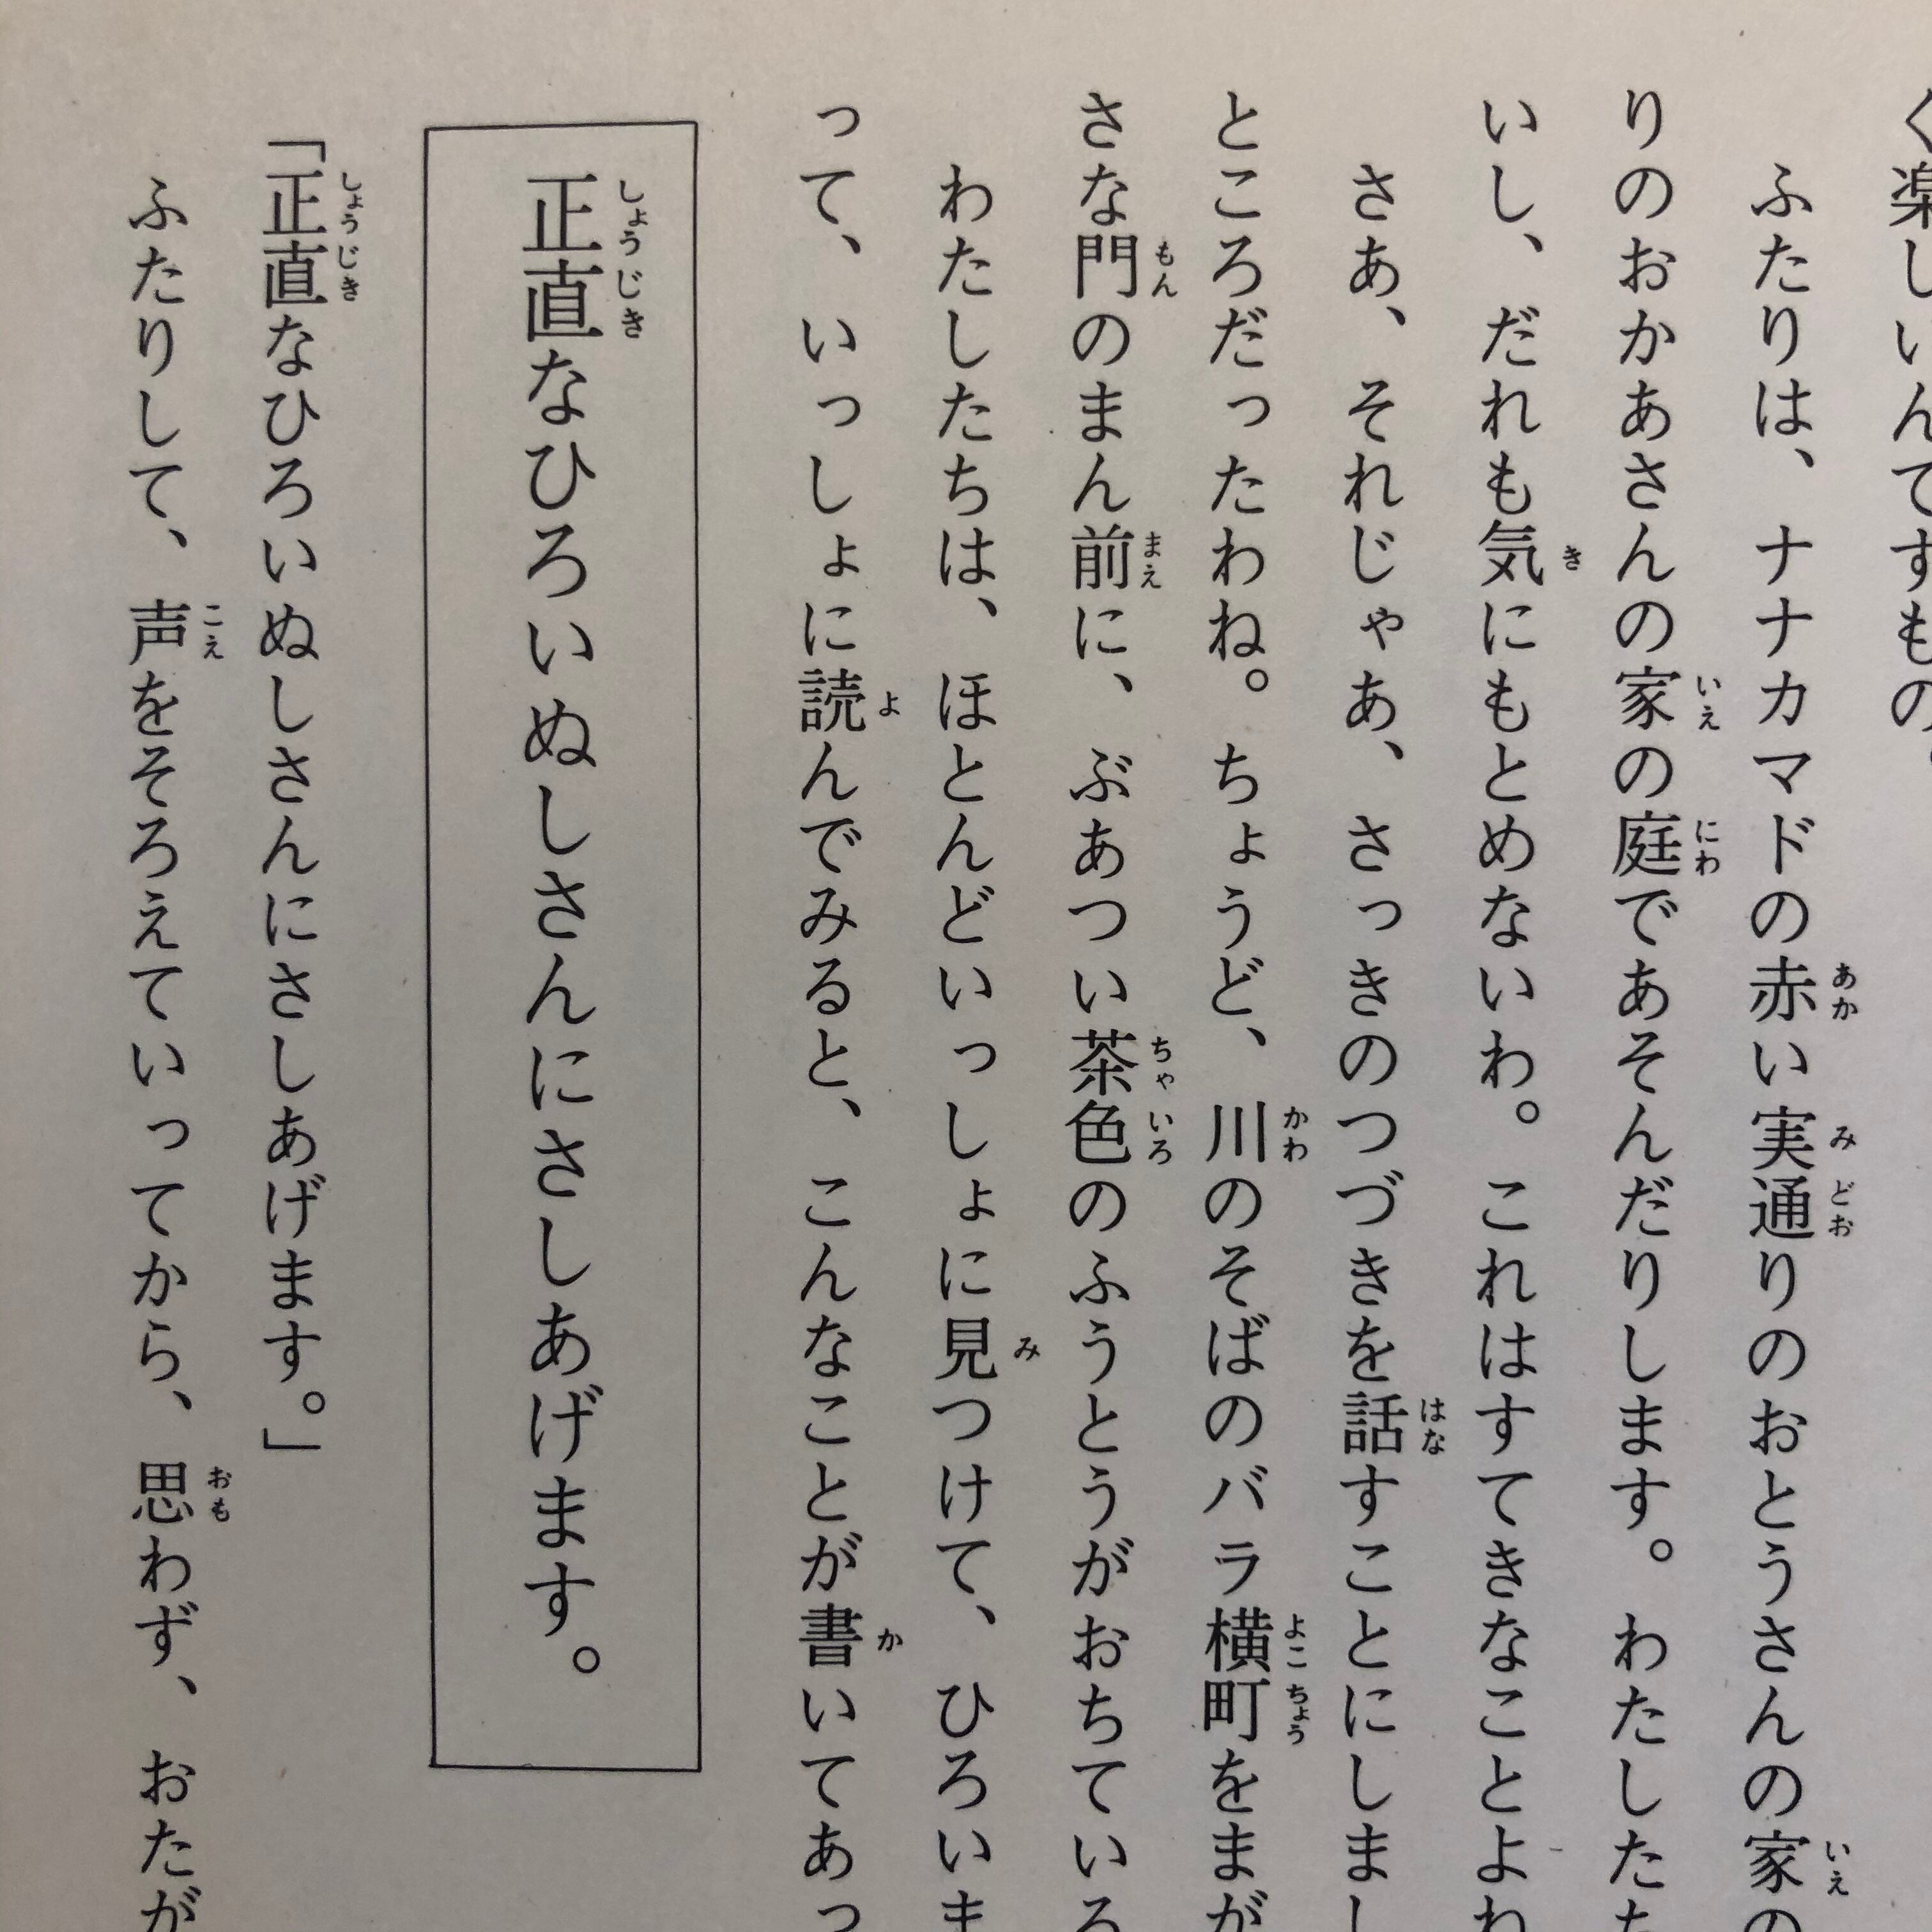 く楽しいんですもの。
ふたりは、ナナカマドの赤い実通りのおとうさんの家の
りのおかあさんの家の庭であそんだりします。わたしたち
いし、だれも気にもとめないわ。これはすてきなことよね
さあ、それじゃあ、さっきのつづきを話すことにしまし
ところだったわね。ちょうど、川のそばのバラ横町をまが
さな門のまん前に、ぶあつい茶色のふうとうがおちている
わたしたちは、ほとんどいっしょに見つけて、ひろいま
って、いっしょに読んでみると、こんなことが書いてあっ
正直なひろいぬしさんにさしあげます。
「正直なひろいぬしさんにさしあげます。」
ふたりして、声をそろえていってから、思わず、おたが